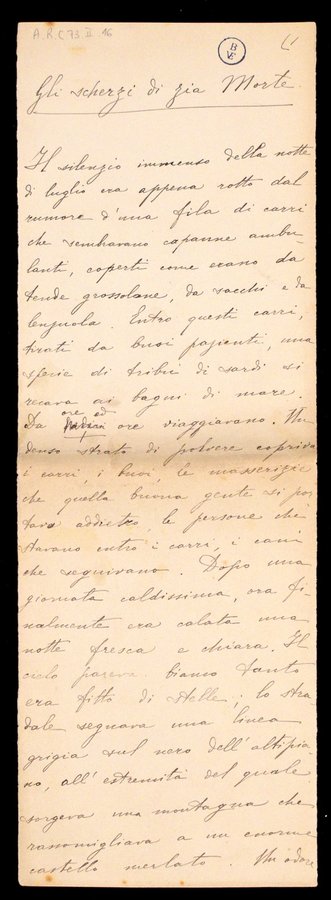 A.R.C 73. II 16
B
VE
Gli scherzi di zia Morte.
Il silenzio immenso della notte
di luglio era appena rotto dal
rumore d'una fila di carri
che sembravano capanne ambu-
lanti, coperti come erano da
tende grossolane, da sacchi e da
lenzuola. Entro questi carri,
tirati da buoi pazienti, una
specie di tribù di sardi si
recava ai bagni di mare.
Da ore ed
ore viaggiavano. Un
denso strato di polvere copriva
i carri, i buoi, le masserizie
che quella buona gente si por
tava addietro, le persone che
stavano entro i carri, i cani
che seguivano. Dopo una
giornata caldissima, ora fi-
nalmente era calata una
notte fresca e chiara. Il
cielo pareva bianco tanto
era fitto di stelle; lo stra
dale segnava una linea
grigia sul nero dell'altipia-
no, all'estremità del quale
sorgeva una montagna che
rassomigliava a un enorme
castello merlato. Un odore